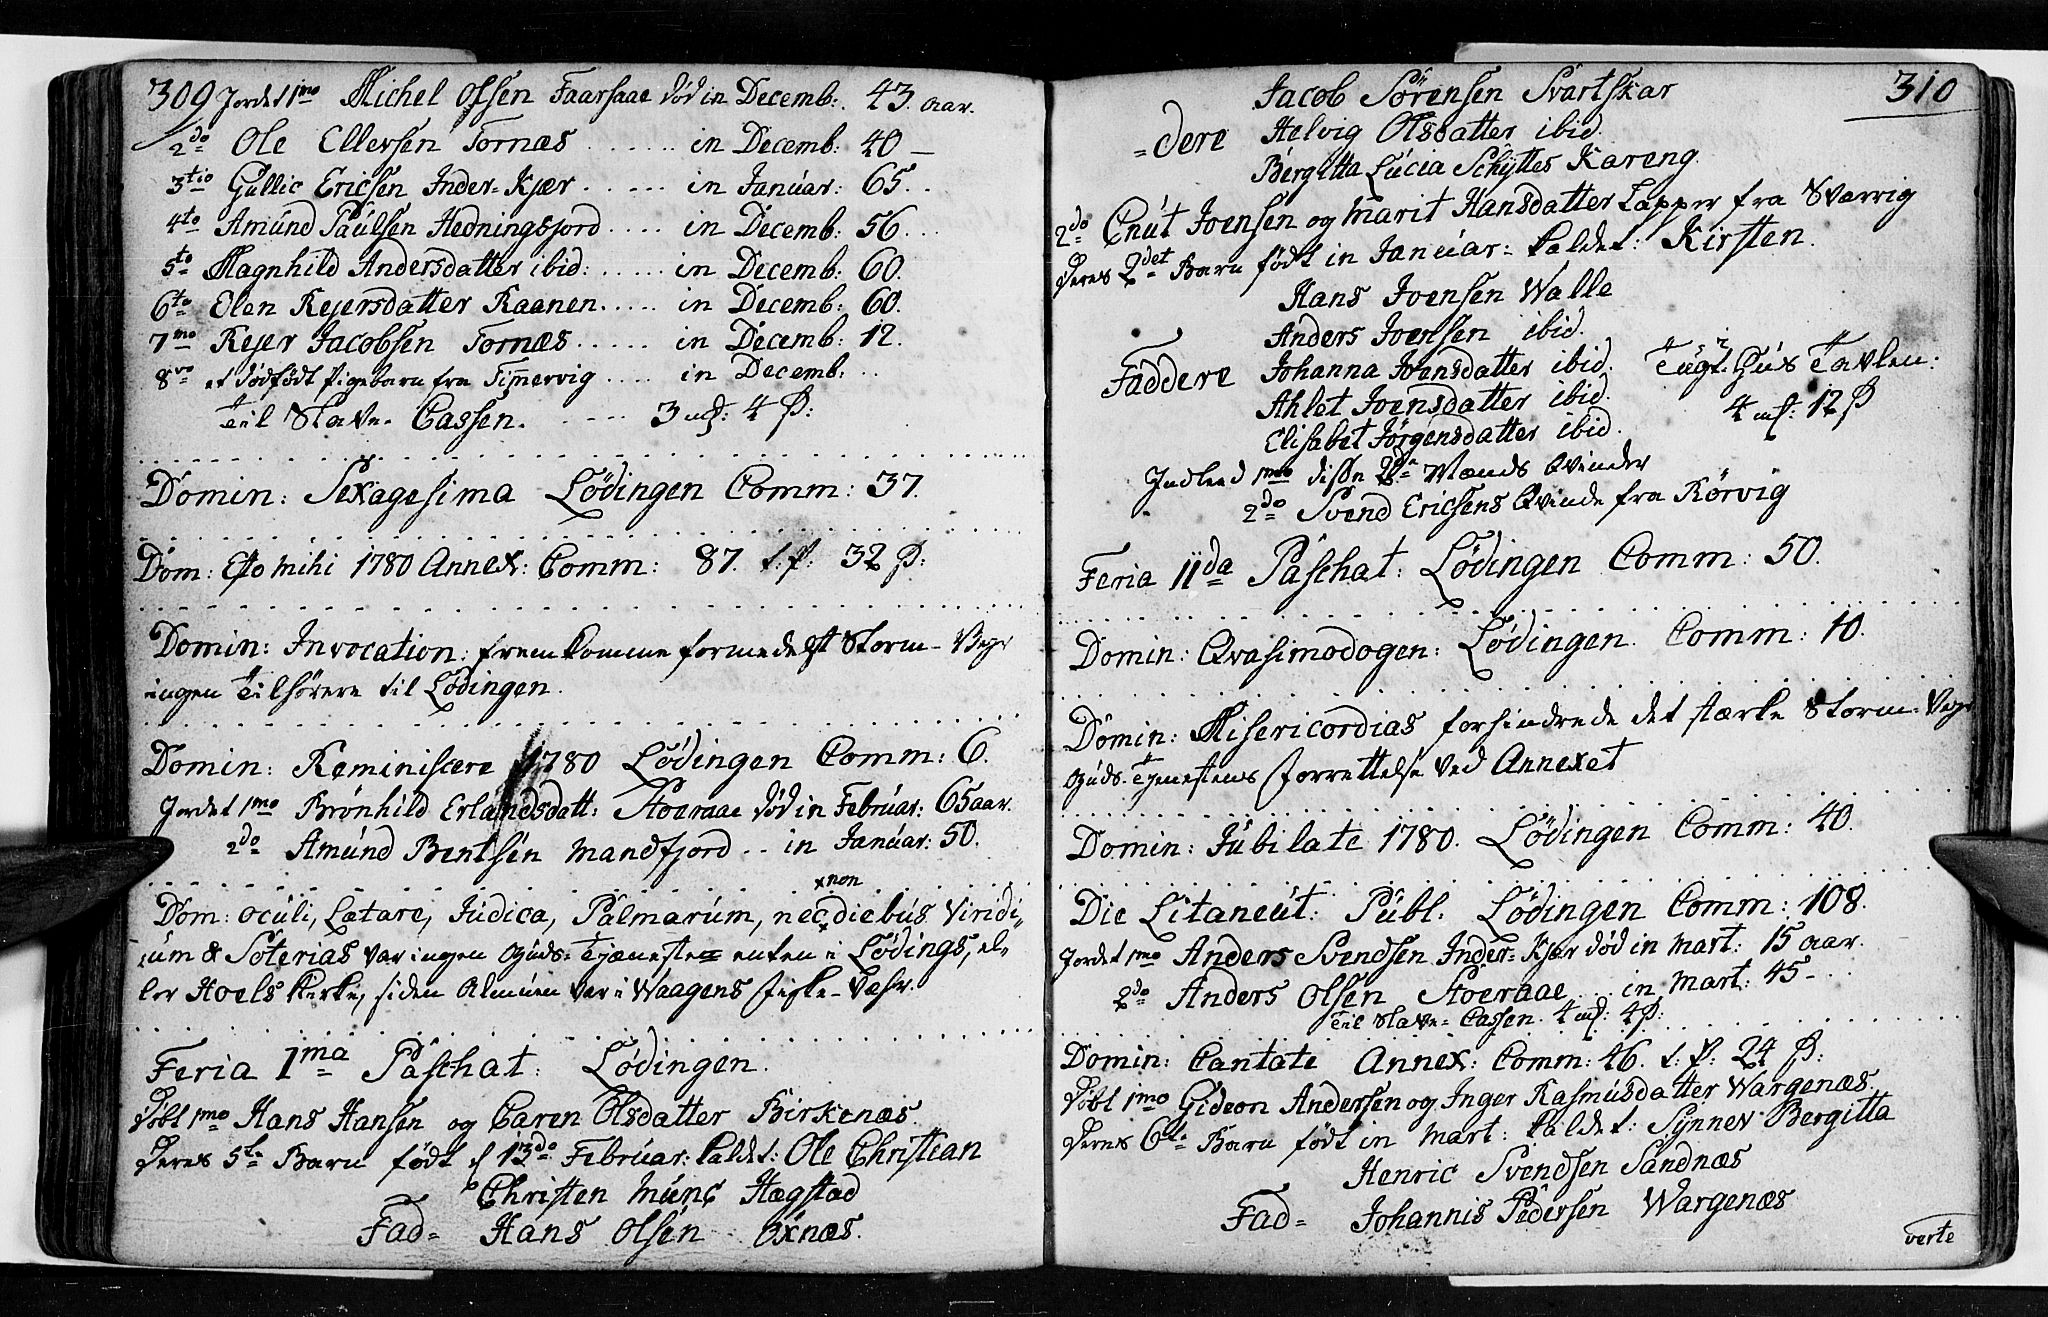 309 Jordet 1mo Michel Olsen Faarsaae død in Decemb: 43. aar.
2do Ole Ellersen Tornæs ...... in Decemb: 40 —
3tio Gullic Ericsen Inder-Kjær ...... in Januar: 65..
4to Amund Paulsen Hedningsjord .... in Decemb: 56...
5to Magnhild Andersdatter ibid: ...... in Decemb: 60.
6to Elen Rejersdatter Raanen ..... in Decemb: 60.
7mo Rejer Jacobsen Tornæs ..... in Decemb: 12.
8vo et dødfødt Pigebarn fra Timmervig .... in Decemb: ..
Til Slave-Cassen. .... 3 mk: 4 ß:
Domin: Sexagesima Lödingen Comm: 37.
Dom: Esto mihi 1780 Annex: Comm: 87. t. f: 32 ß:
Domin: Invocation: fremkomme formedelst Storm-Vejr
ingen Tilhørere til Lödingen.
Domin: Reminiscere 1780 Lödingen Comm: 6.
Jordet 1mo Brönhild Erlandsdatt: Stoeraae død in Februar: 65 aar.
2do Amund Bentsen Mandfjord .. in Januar: 50.
Dom: Oculi, Lætare, Judica, Palmarum, nec non diebus Viridi-
um & Soterias var ingen Guds-Tjæneste enten i Lödings, el-
ler Hoels Kirke, siden Almuen var i Waagens Fiske-Vær.
Feria 1ma Paschat: Lödingen.
Döbt 1mo Hans Hansen og Caren Olsdatter Birkenæs
Deres 5te Barn födt d 13do Februar: kaldet: Ole Christian
Christen Munc Hegstad
Fad= Hans Olsen Öxnæs.
310
Jacob Sörensen Svartskar
=dere Helvig Olsdatter ibid.
Bergitta Lucia Schyttes Kareng.
2do Cnut Joensen og Marit Hansdatter Lapper fra Sverrig
Deres 2det Barn födt in Januar: kaldet: Kirsten.
Hans Joensen Walle
Anders Joensen ibid.
Faddere Johanna Joensdatter ibid. Tugt-Huus Tavlen:
Ahlet Joensdatter ibid. 4 mk: 12 ß
Elisabet Jörgensdatter ibid.
Indleed 1mo disse 2de Mænds Qvinder
2do Svend Ericsens Qvinde fra Rörvig
Feria IIda Paschat: Lödingen Comm: 50.
Domin: Qvasimodogen: Lödingen. Comm: 10.
Domin: Misericordias forhindrede det stærke Storm-Vejr
Guds-Tjenestens Forrettelse ved Annexet
Domin: Jubilate 1780. Lödingen Comm: 40.
Die Litaneut: Publ. Lödingen Comm: 108.
Jordet 1mo Anders Svendsen Inder-Kjær død in Mart: 15 aar.
2do Anders Olsen Stoeraae ... in Mart: 45 —
Til Slave-Cassen. 4 mk: 4 ß:
Domin: Cantate Annex: Comm: 46. t. f: 24 ß:
Döbt 1mo Gideon Andersen og Inger Rasmusdatter Wargenæs.
Deres 6te Barn födt in Mart: kaldet: Synnev Bergitta
Henric Svendsen Sandnæs
Fad= Johannis Pedersen Wargenæs
verte